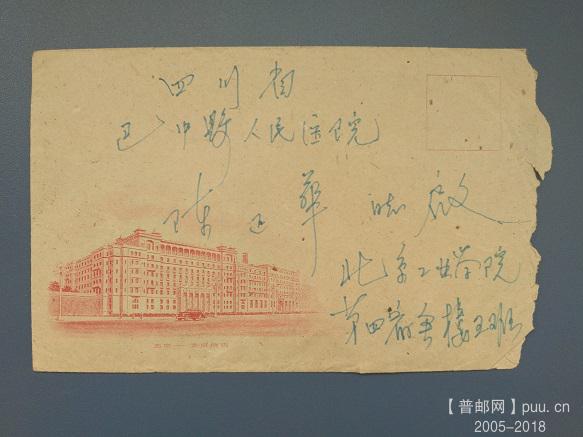 四川省
巴中县人民医院
陈正华 同志 启
北京工业学院
第四宿舍楼五班
【普邮网】puu.cn
2005-2018